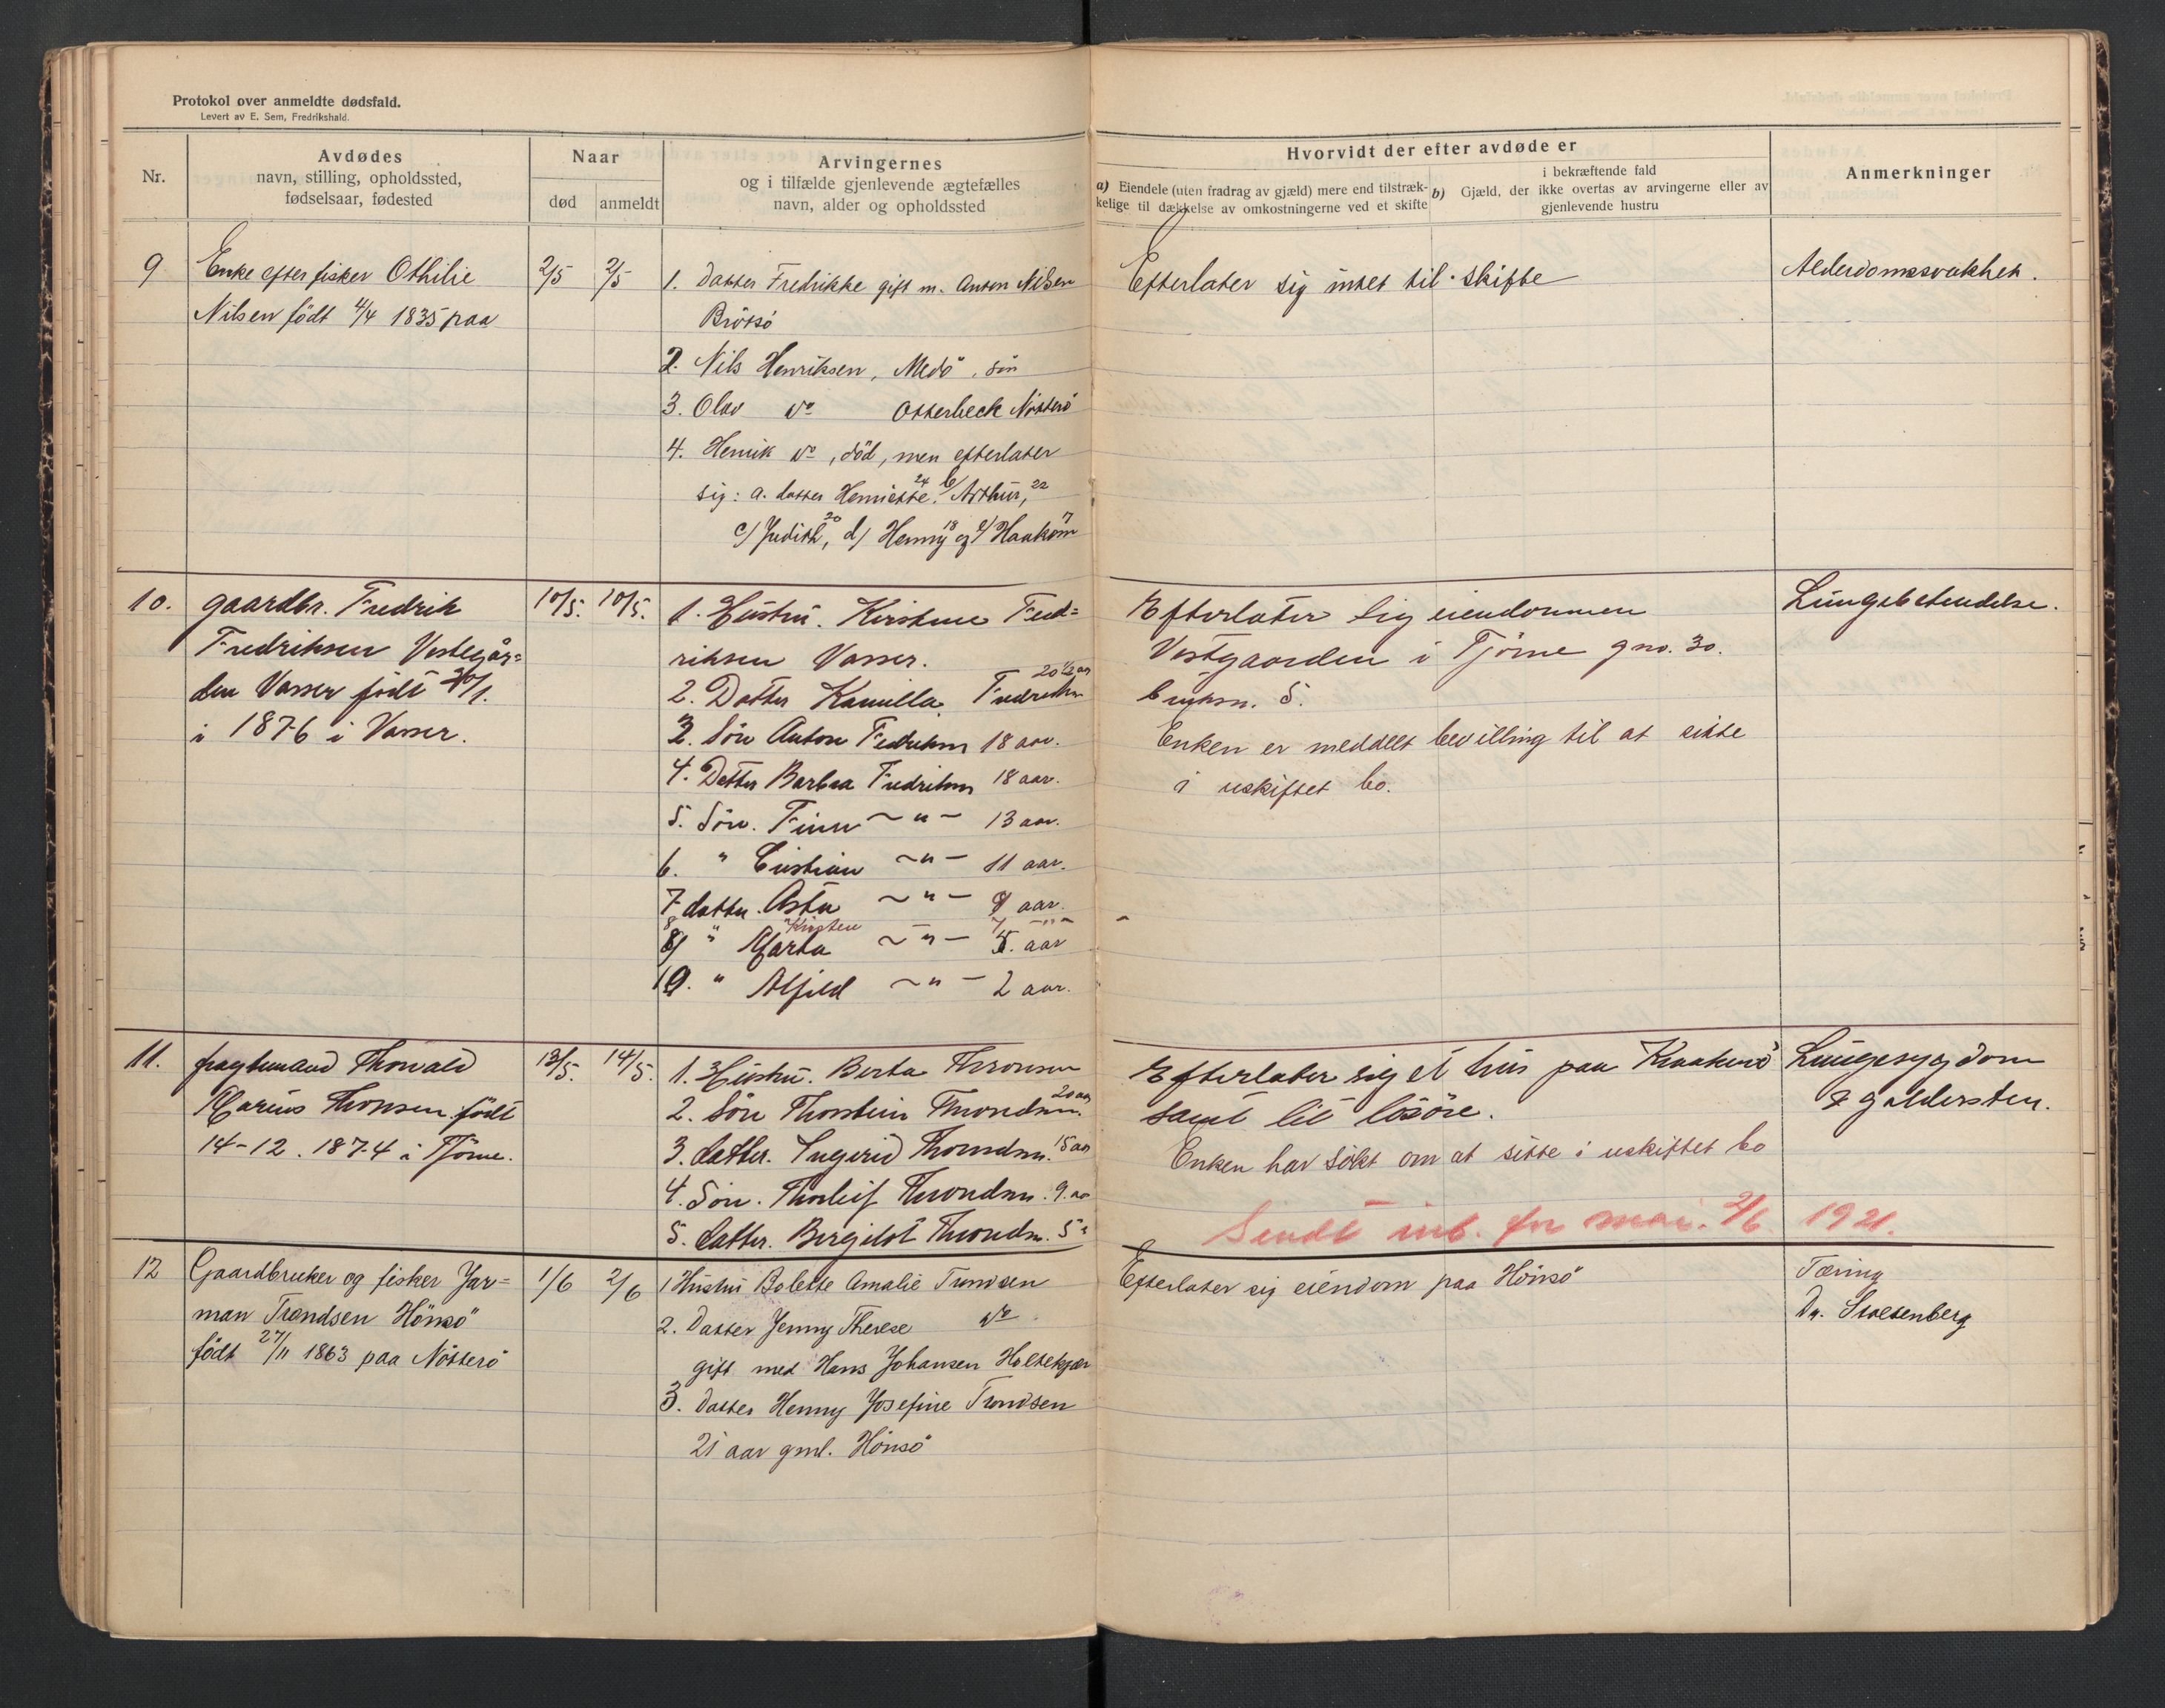 Protokol over anmeldte dødsfald.
Levert av E. Sem, Fredrikshald.
Nr.
Avdødes
navn, stilling, opholdssted,
fødselsaar, fødested
Naar
død
anmeldt
Arvingernes
og i tilfælde gjenlevende ægtefælles
navn, alder og opholdssted
Hvorvidt der efter avdøde er
a) Eiendele (uten fradrag av gjæld) mere end tilstræk-
kelige til dækkelse av omkostningerne ved et skifte
i bekræftende fald
b) Gjæld, der ikke overtas av arvingerne eller av
gjenlevende hustru
Anmerkninger
9
Enke efter fisker Othilie
Nilsen födt 4/4 1835 paa
2/5
2/5
1. Datter Fredrikke gift m. Anton Nilsen
Brötsö
2. Nils Henriksen, Medö, sön
3. Olav do Otterbeck Nötterö
4. Henrik do, död, men efterlater
sig: a. datter Henriette 24, b/ Arthur, 22
c/ Judith 20, d/ Henny 18 og e/ Haakon 7
Efterlater sig intet til skifte
Alderdomssvakhet.
10.
gaardbr. Fredrik
Fredriksen Vestegår=
den Vasser födt 20/1.
i 1876 i Vasser.
10/5.
10/5.
1. Hustru. Kirstine Fred=
riksen Vasser.
2. Datter Kamilla Fredriksen 20 1/2 aar
3. Sön Anton Fredriksen 18 aar.
4. Datter Barbra Fredriksen 18 aar.
5. Sön. Finn ~ " – 13 aar.
6. " Cristian ~ " – 11 aar.
7 datter. Asta ~ " – 9 aar.
8 " Kirsten – 7 – " –
9/ " Marta ~ " – 5. aar
10. " Alfild ~ " – 2 aar.
Efterlater sig eiendommen
Vestgaarden i Tjöme gno. 30.
bruksn. 5.
Enken er meddelt bevilling til at sitte
i uskiftet bo.
Lungebetendelse.
11.
fragtemand Thorvald
Marius Thonsen födt
14-12. 1874 i Tjöme.
13/5.
14/5.
1. Hustru. Berta Thronsen
2. Sön Thorstein Throndsen. 20 aar
3. datter. Ingerid Throndsn. 15 aar
4. Sön. Thorleif Throndsn. 9. aa
5. datter. Bergljot Throndsn. 5 "
Efterlater sig et hus paa Kraakerö
samt lit lösöre.
Enken har sökt om at sitte i uskiftet bo
Lungesygdom
& galdersten.
Sendt inb. for mai. 2/6 1921.
12
Gaardbruker og fisker Jar=
man Trondsen Hönsö
födt 27/11 1863 paa Nötterö
1/6
2/6
1 Hustru Bolette Amalie Trondsen
2. Datter Jenny Therese do
gift med Hans Johansen Holtekjær
3. Datter Henny Josefine Trondsen
21 aar gml. Hönsö
Efterlater sig eiendom paa Hönsö
Tæring
Dr. Stoltenberg